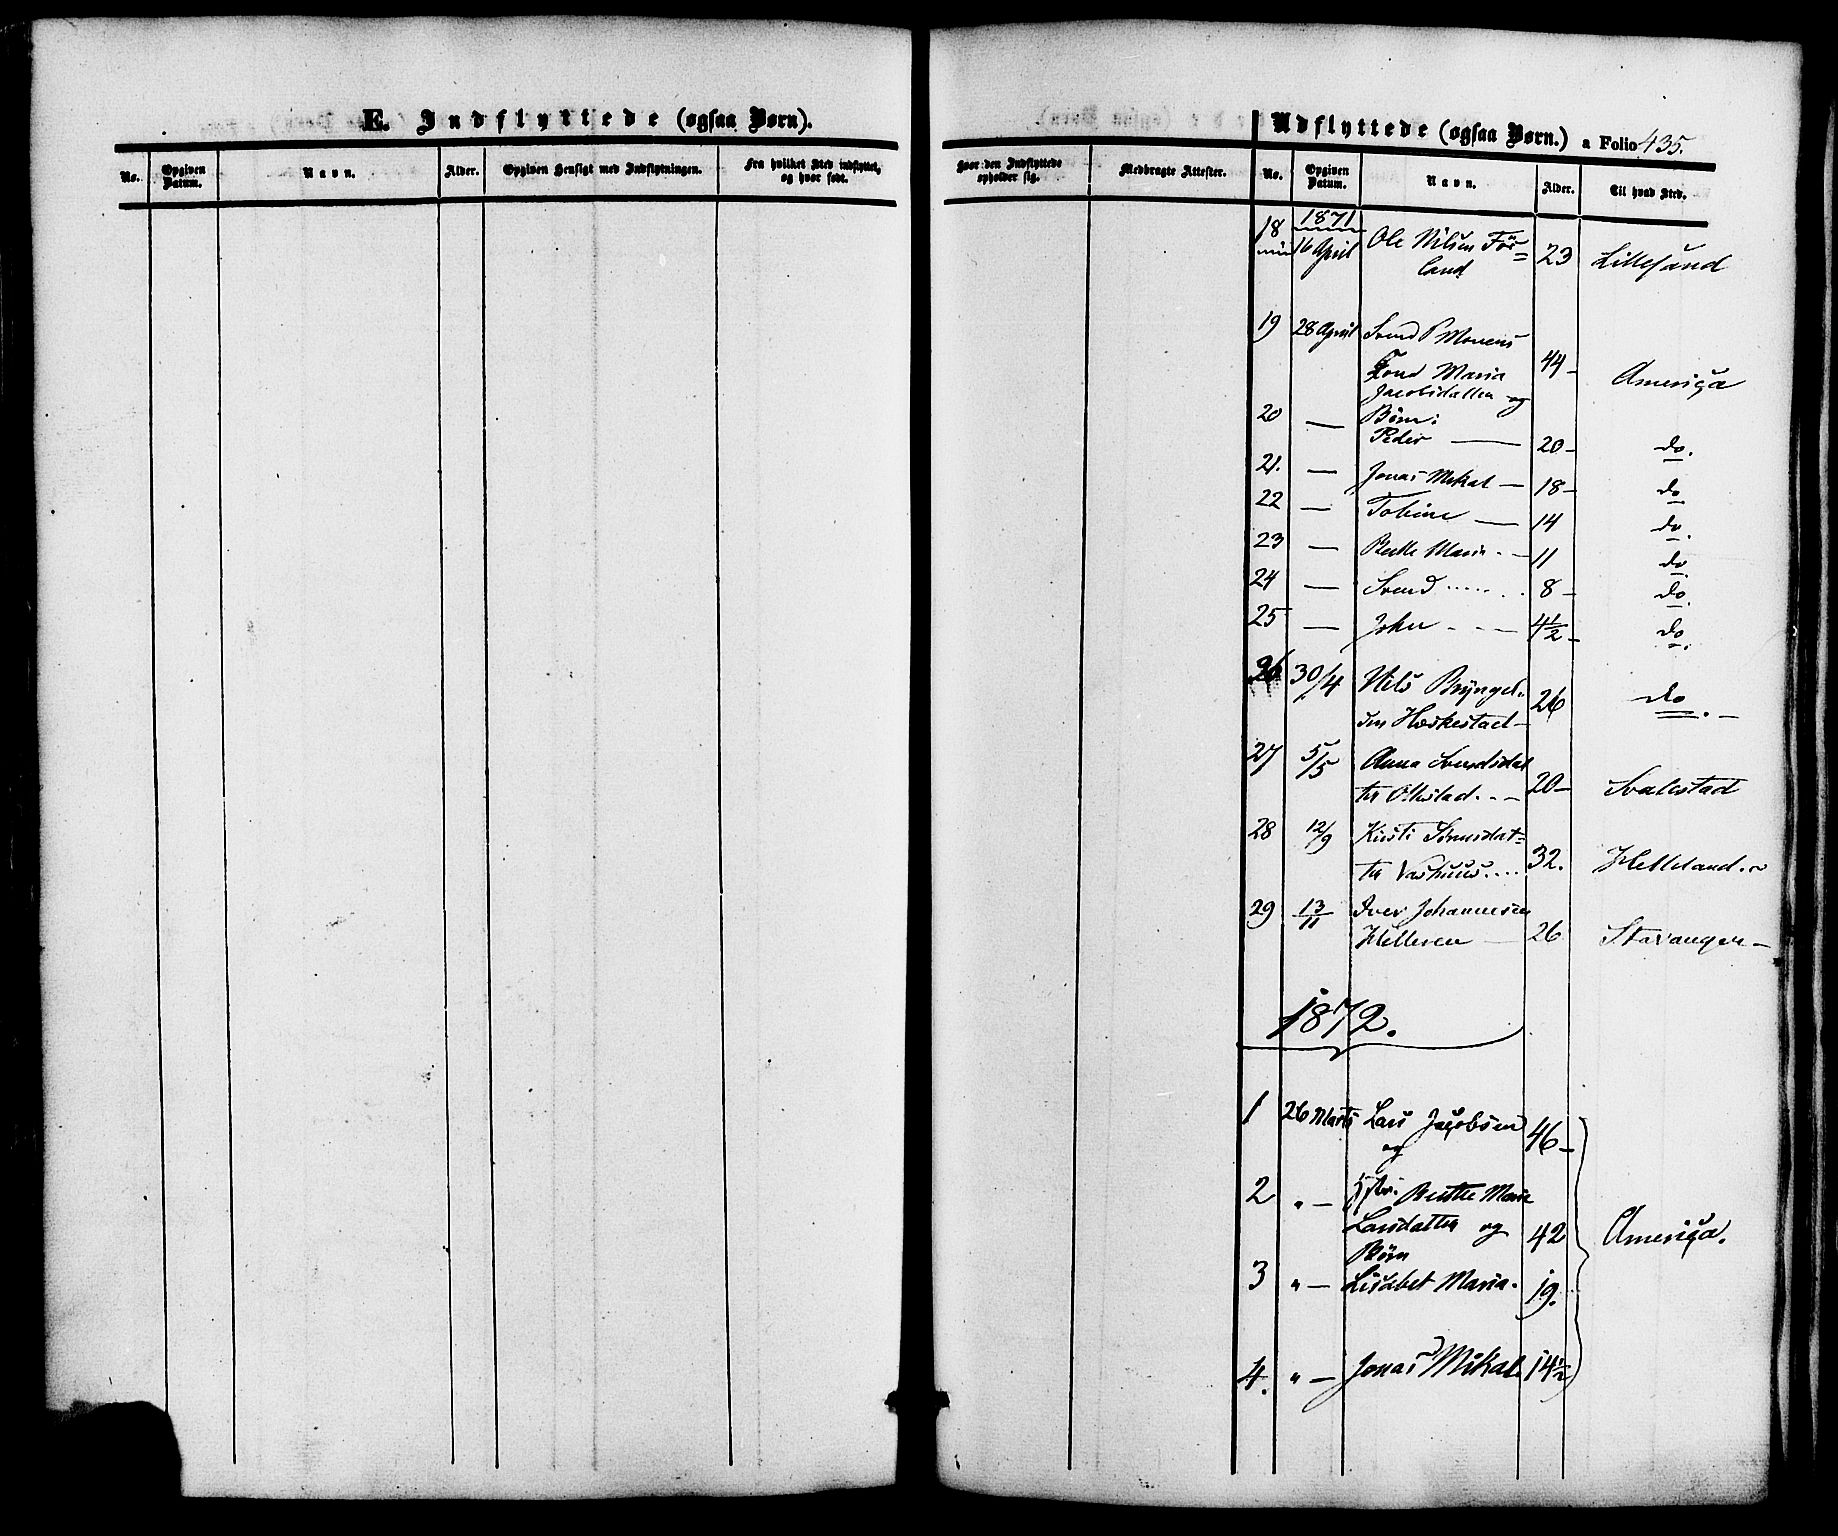 E. Indflyttede (ogsaa Børn).
No.
Opgiven Datum.
Navn.
Alder.
Opgiven Hensigt med Indflytningen.
Fra hvilket Sted indflyttet, og hvor født.
Udflyttede (ogsaa Børn.) a Folio 435.
Hvor den Indflyttede opholder sig.
Medbragte Attester.
No.
Opgiven Datum.
Navn.
Alder.
Til hvad Sted.
1871
18 16 April Ole Nilsen För=
land 23 Lillesand
19 28 April Svend P Monens
Maria 44 – America
Jacobsdatter og
20 — Börn:
Peder — 20 – do.
21. — Jonas Mikal — 18 – do
22 — Tobine — 14 do.
23 — Berthe Marie - — 11 do
24 — Svend ...... 8 – do.
25 — John - - — 4½ – do.
26 30/4 Nils Bryngel-
sen Hæskestad – 26 do. –
27 5/5 Anna Svendsdat
ter Ollestad. - – 20 – Svalestad
28 12/9 Kirsti
ter Vashuus.... 32. Helleland.
29 13/11 Iver Johannesen
Helleren — 26 Stavanger –
1872.
1 26 Marts Lars Jacobsen
og 46 –
2 " – Berthe Marie
Larsdatter og 42 America.
Börn
3 " – Lisabet Maria. 19.
4. " – Jonas Mikal. 14½